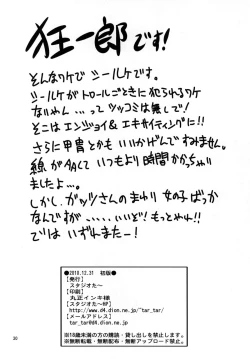 狂一郎です!
そんなワケでシールケです。
シールケがトロールごときに犯られるワケ
ないやん、…ってツッコミは無しで!
そこはエンジョイ&エキサイティングに!!
さらに甲冑ともいいかげんですみません。
線がAACていつもより時間かかっちゃい
ましたよ…。
しかし、ガッツさんのまわり女の子ばっか
なんですが……いいぞ!もっとやれ!!
ではいずれまたー!
●2018.12.31 初版●
【発行】
スタジオたー
【印刷】
丸正インキ様
【スタジオたーHP】
http://www.d4.dion.ne.jp/~tar_tar/
【メールアドレス】
tar_tar@d4.dion.ne.jp
※18歳未満の方の購読・貸し出しを禁止します。
※無断転載・無断配布・無断アップロード禁止。